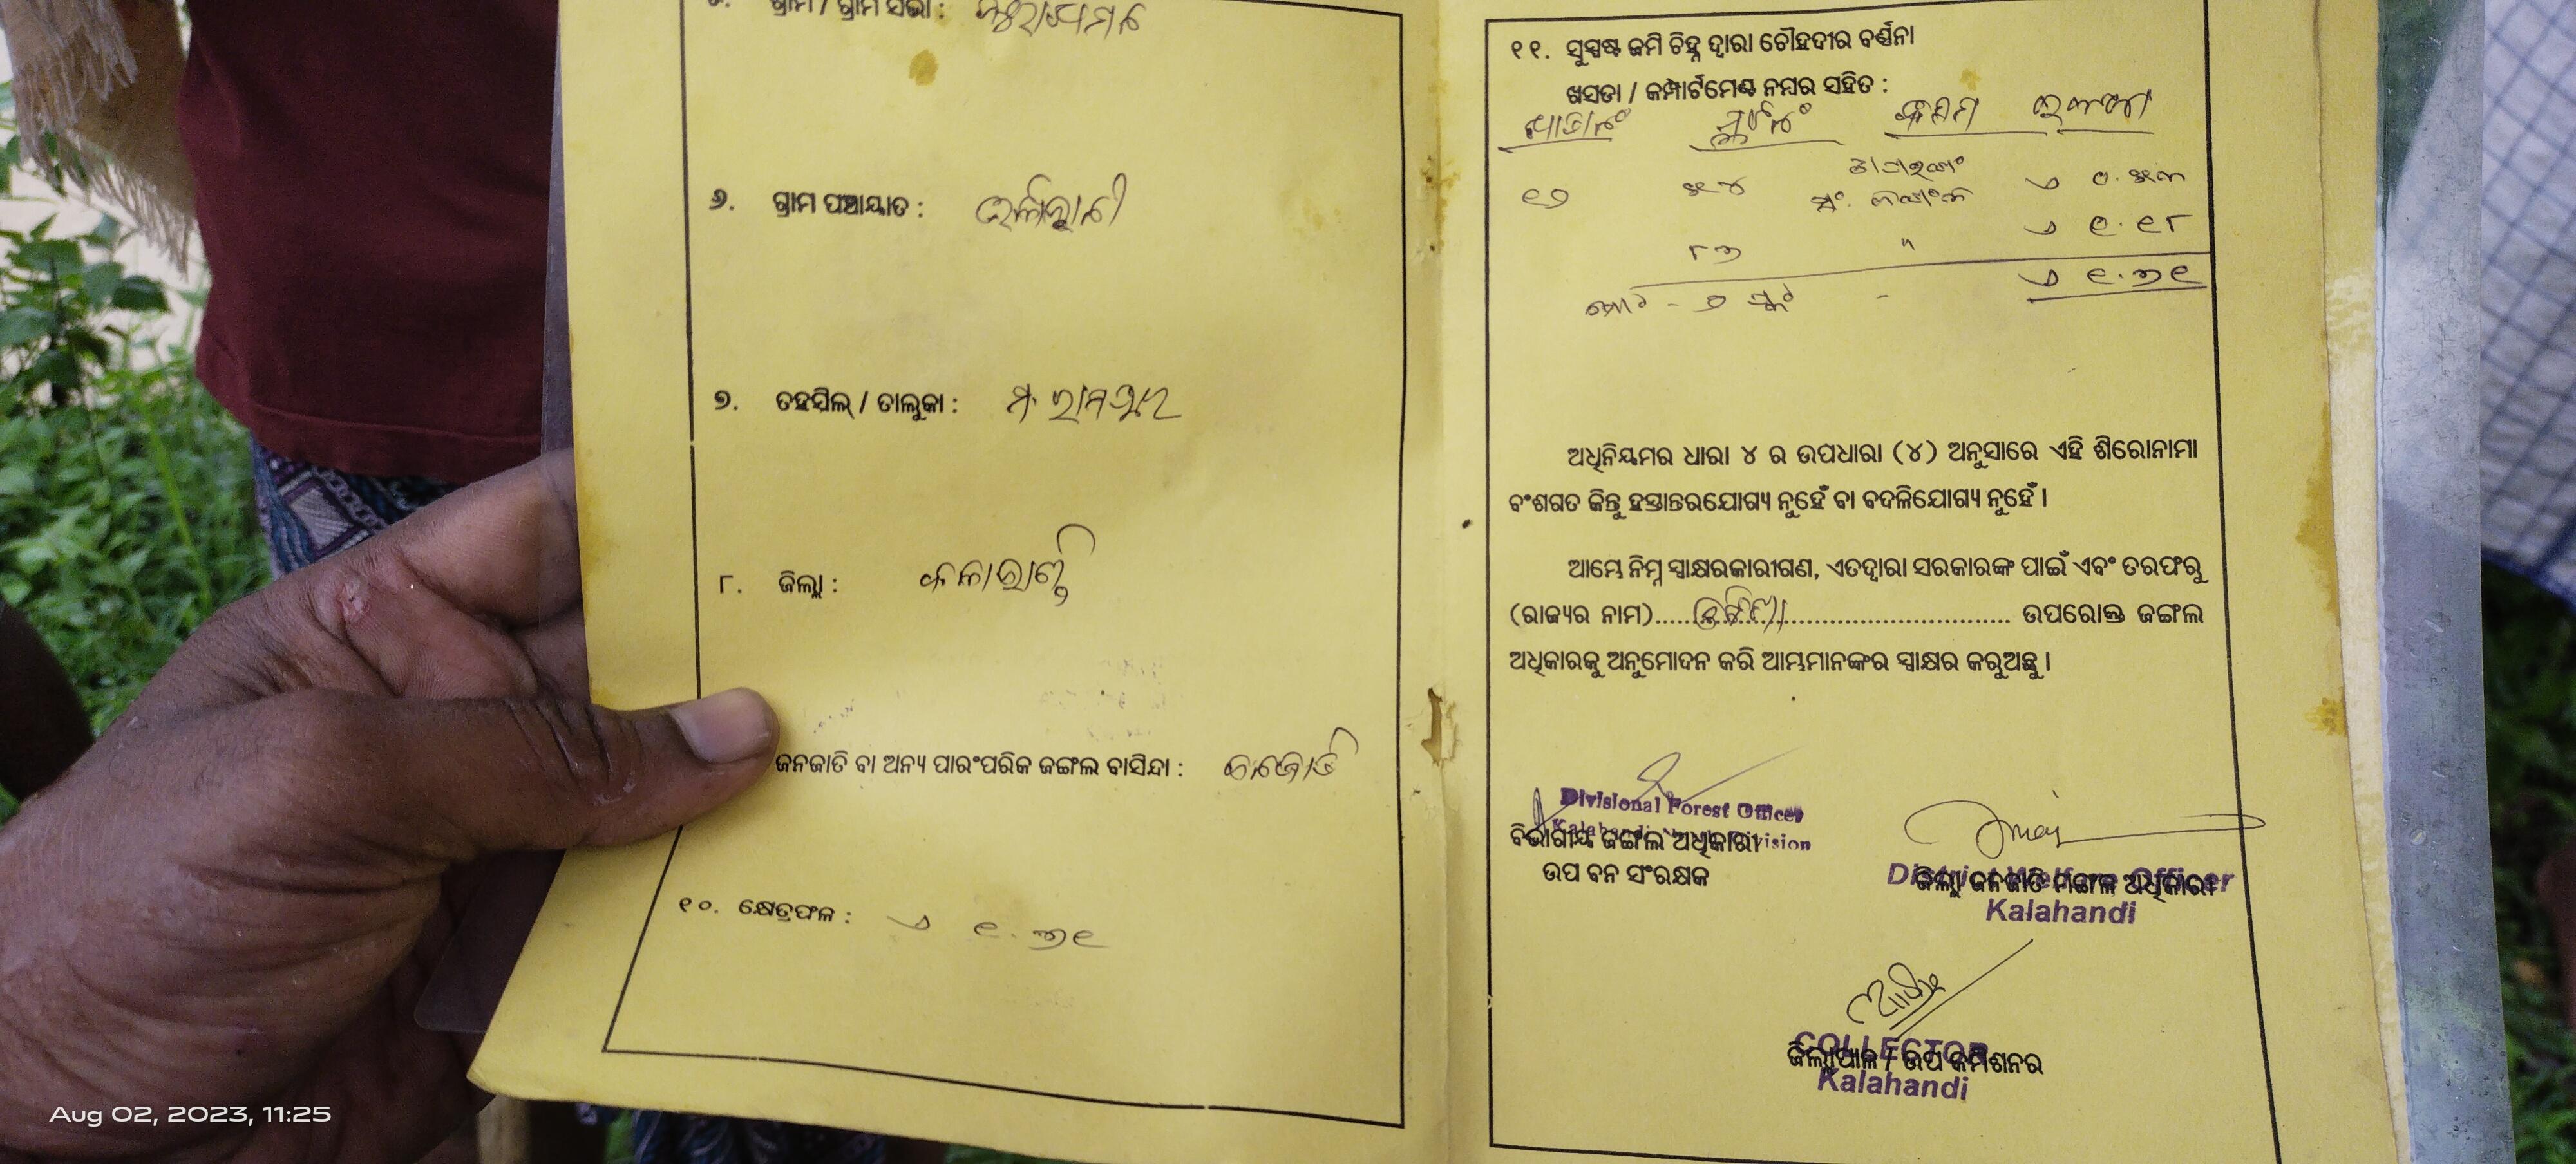 ଗ୍ରାମ / ଗ୍ରାମ ସଭା :
୬. ଗ୍ରାମ ପଞ୍ଚାୟାତ :
୭. ତହସିଲ୍ / ତାଲୁକା : ମ. ରାମପୁର
୮. ଜିଲ୍ଲା : କଳାହାଣ୍ଡି
ଜନଜାତି ବା ଅନ୍ୟ ପାରଂପରିକ ଜଙ୍ଗଲ ବାସିନ୍ଦା :
୧୦. କ୍ଷେତ୍ରଫଳ : ୧.୩୧
୧୧. ସୁସ୍ପଷ୍ଟ ଜମି ଚିହ୍ନ ଦ୍ୱାରା ଚୌହଦୀର ବର୍ଣ୍ଣନା
ଖସଡା / କମ୍ପାର୍ଟମେଣ୍ଟ ନମ୍ବର ସହିତ :
ଖାତା ନଂ ପ୍ଲଟ ନଂ କିସମ
୧୨
୧.୧୮
୮୩ "
୧.୩୧
ଅଧିନିୟମର ଧାରା ୪ ର ଉପଧାରା (୪) ଅନୁସାରେ ଏହି ଶିରୋନାମା
ବଂଶଗତ କିନ୍ତୁ ହସ୍ତାନ୍ତରଯୋଗ୍ୟ ନୁହେଁ ବା ବଦଳିଯୋଗ୍ୟ ନୁହେଁ ।
ଆମ୍ଭେ ନିମ୍ନ ସ୍ୱାକ୍ଷରକାରୀଗଣ, ଏତଦ୍ୱାରା ସରକାରଙ୍କ ପାଇଁ ଏବଂ ତରଫରୁ
(ରାଜ୍ୟର ନାମ)......ଓଡ଼ିଶା...................................... ଉପରୋକ୍ତ ଜଙ୍ଗଲ
ଅଧିକାରକୁ ଅନୁମୋଦନ କରି ଆମ୍ଭମାନଙ୍କର ସ୍ୱାକ୍ଷର କରୁଅଛୁ ।
Divisional Forest Officer
ବିଭାଗୀୟ ଜଙ୍ଗଲ ଅଧିକାରୀ
ଉପ ବନ ସଂରକ୍ଷକ
District Welfare Officer
ଜିଲ୍ଲା ଜନଜାତି ମଙ୍ଗଳ ଅଧିକାରୀ
Kalahandi
COLLECTOR
ଜିଲ୍ଲାପାଳ / ଉପ କମିଶନର
Kalahandi
Aug 02, 2023, 11:25